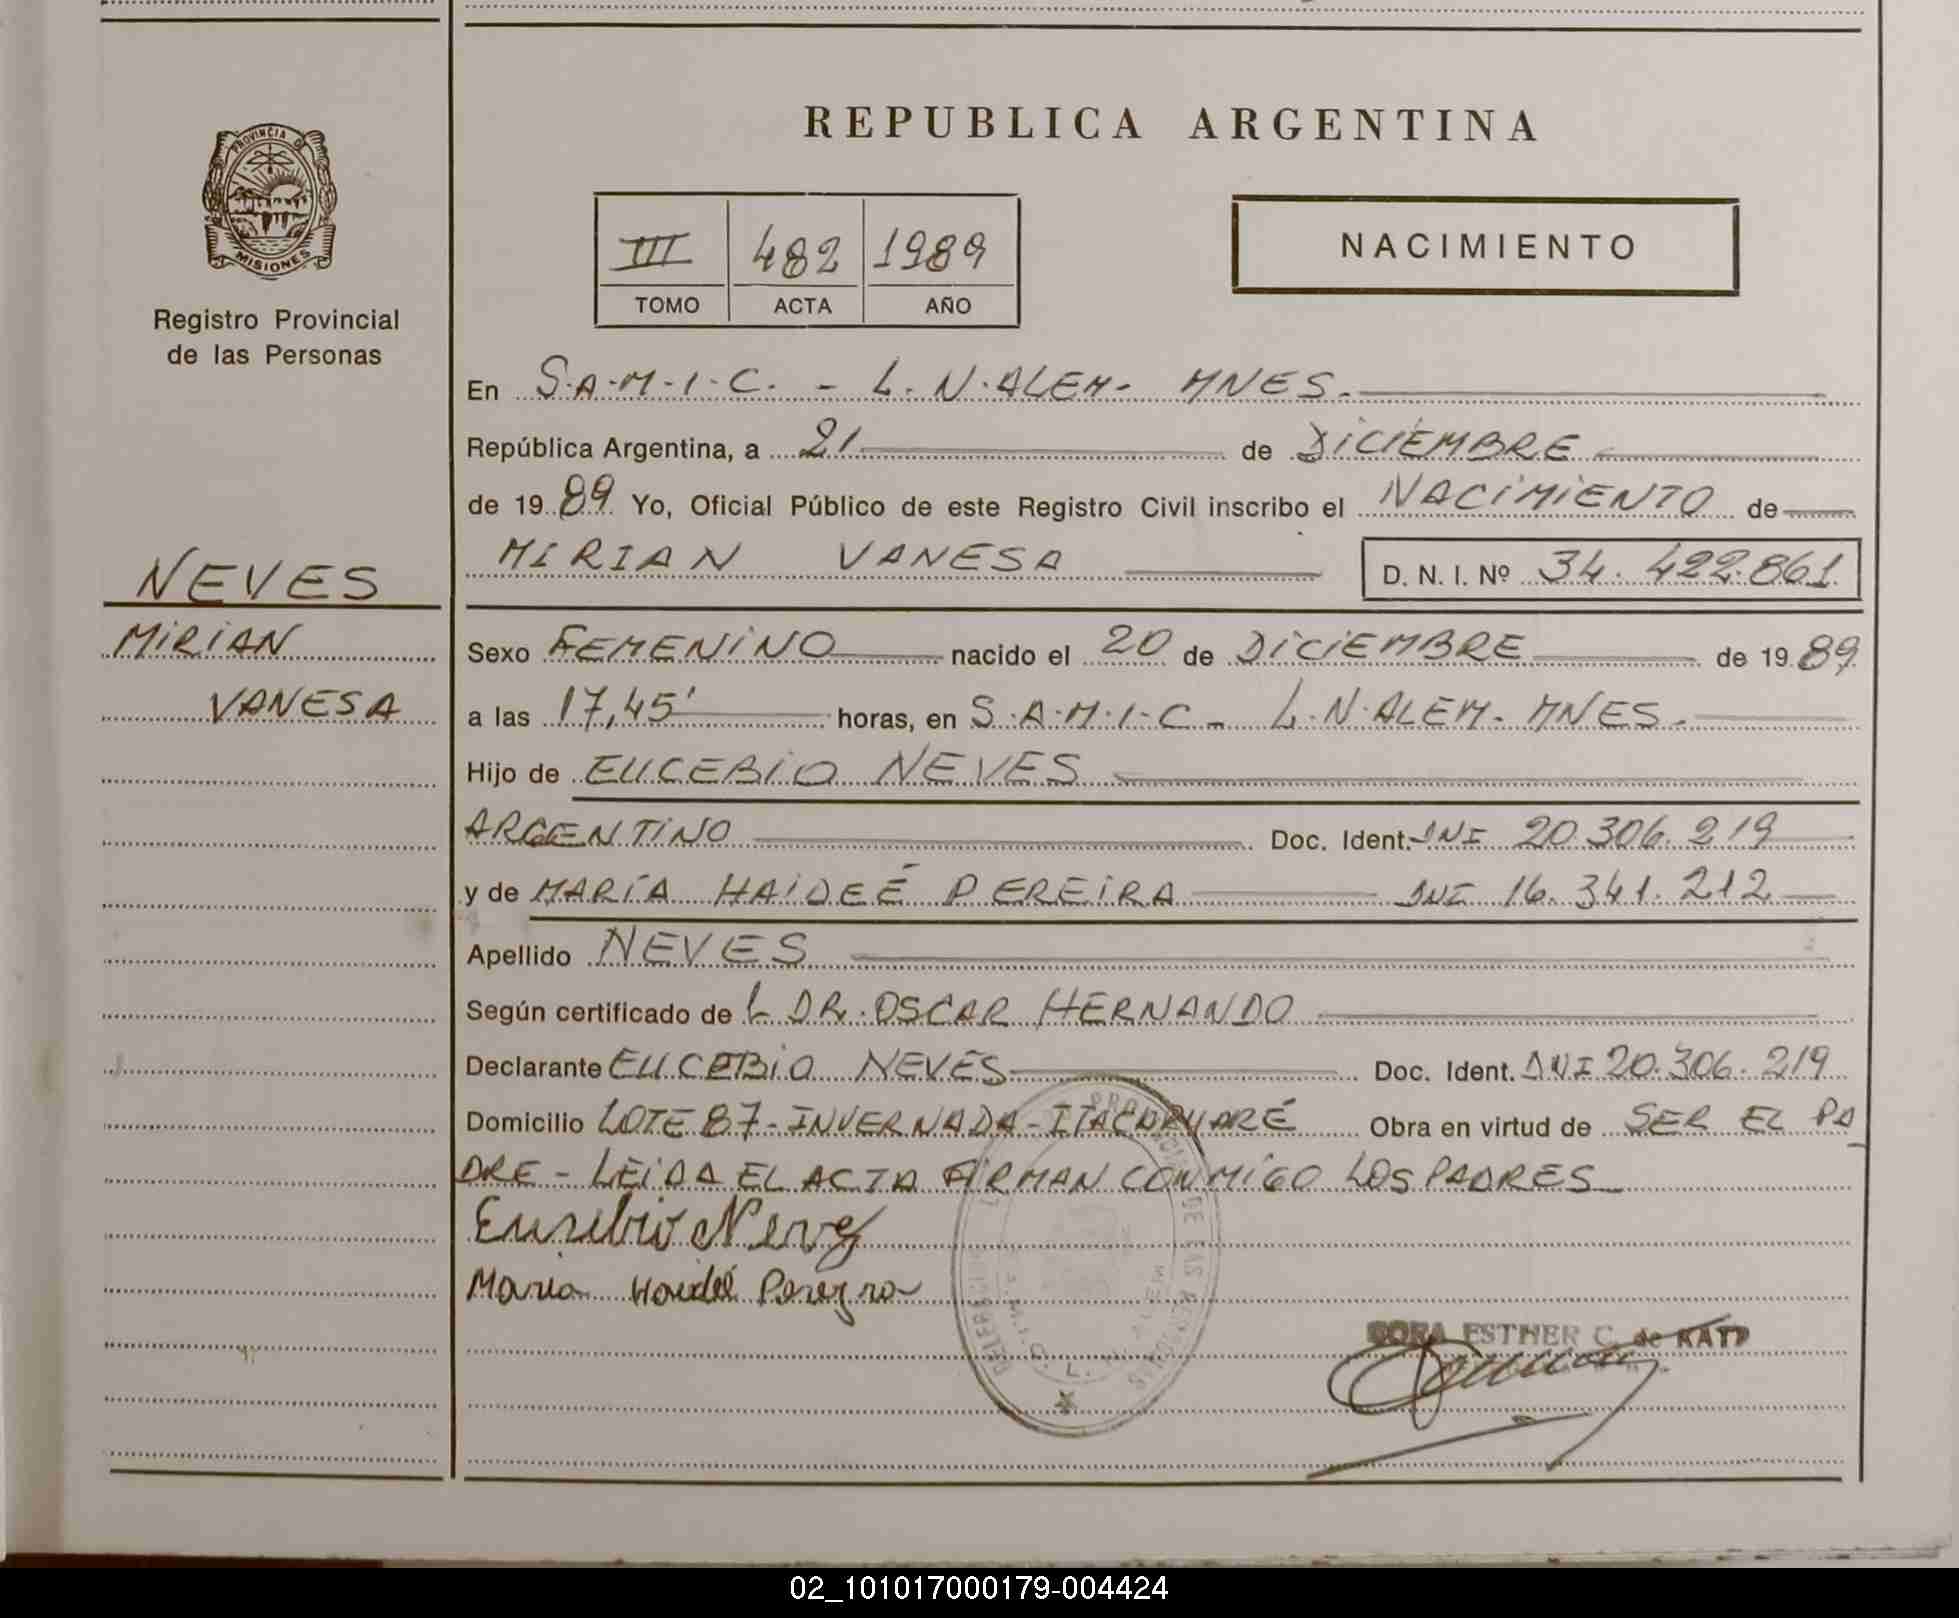 REPUBLICA ARGENTINA
PROVINCIA D
MISIONES
Registro Provincial
de las Personas
III 482 1989
TOMO ACTA AÑO
NACIMIENTO
En S.A.M.I.C. - L.N.ALEM- MNES.
República Argentina, a 21 de DICIEMBRE
de 1989 Yo, Oficial Público de este Registro Civil inscribo el NACIMIENTO de
MIRIAN VANESA D. N. I. Nº 34.422.861
NEVES
MIRIAN
VANESA
Sexo FEMENINO nacido el 20 de DICIEMBRE de 1989
a las 17,45' horas, en S.A.M.I.C- L.N.ALEM- MNES-
Hijo de EUCEBIO NEVES
ARGENTINO Doc. Ident. DNI 20.306.219
y de MARÍA HAIDEÉ PEREIRA DNI 16.341.212
Apellido NEVES
Según certificado de L DR. OSCAR HERNANDO
Declarante EUCEBIO NEVES Doc. Ident. DNI 20.306.219
Domicilio LOTE 87-INVERNADA-ITACARUARÉ Obra en virtud de SER EL PA_
DRE - LEIDA EL ACTA FIRMAN CONMIGO LOS PADRES
Eusebio Neves
Maria Haideé Pereyra
DORA ESTHER C. de KATZ
02_101017000179-004424